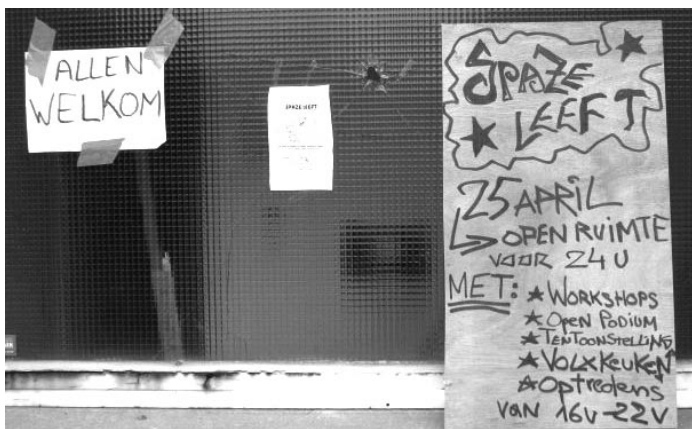 ALLEN
WELKOM
SPAZE LEEFT
SPAZE
LEEFT
25 APRIL
OPEN RUIMTE
VOOR 24 U
MET:
WORKSHOPS
OPEN PODIUM
TENTOONSTELLING
VOLXKEUKEN
OPTREDENS
VAN 16U-22U